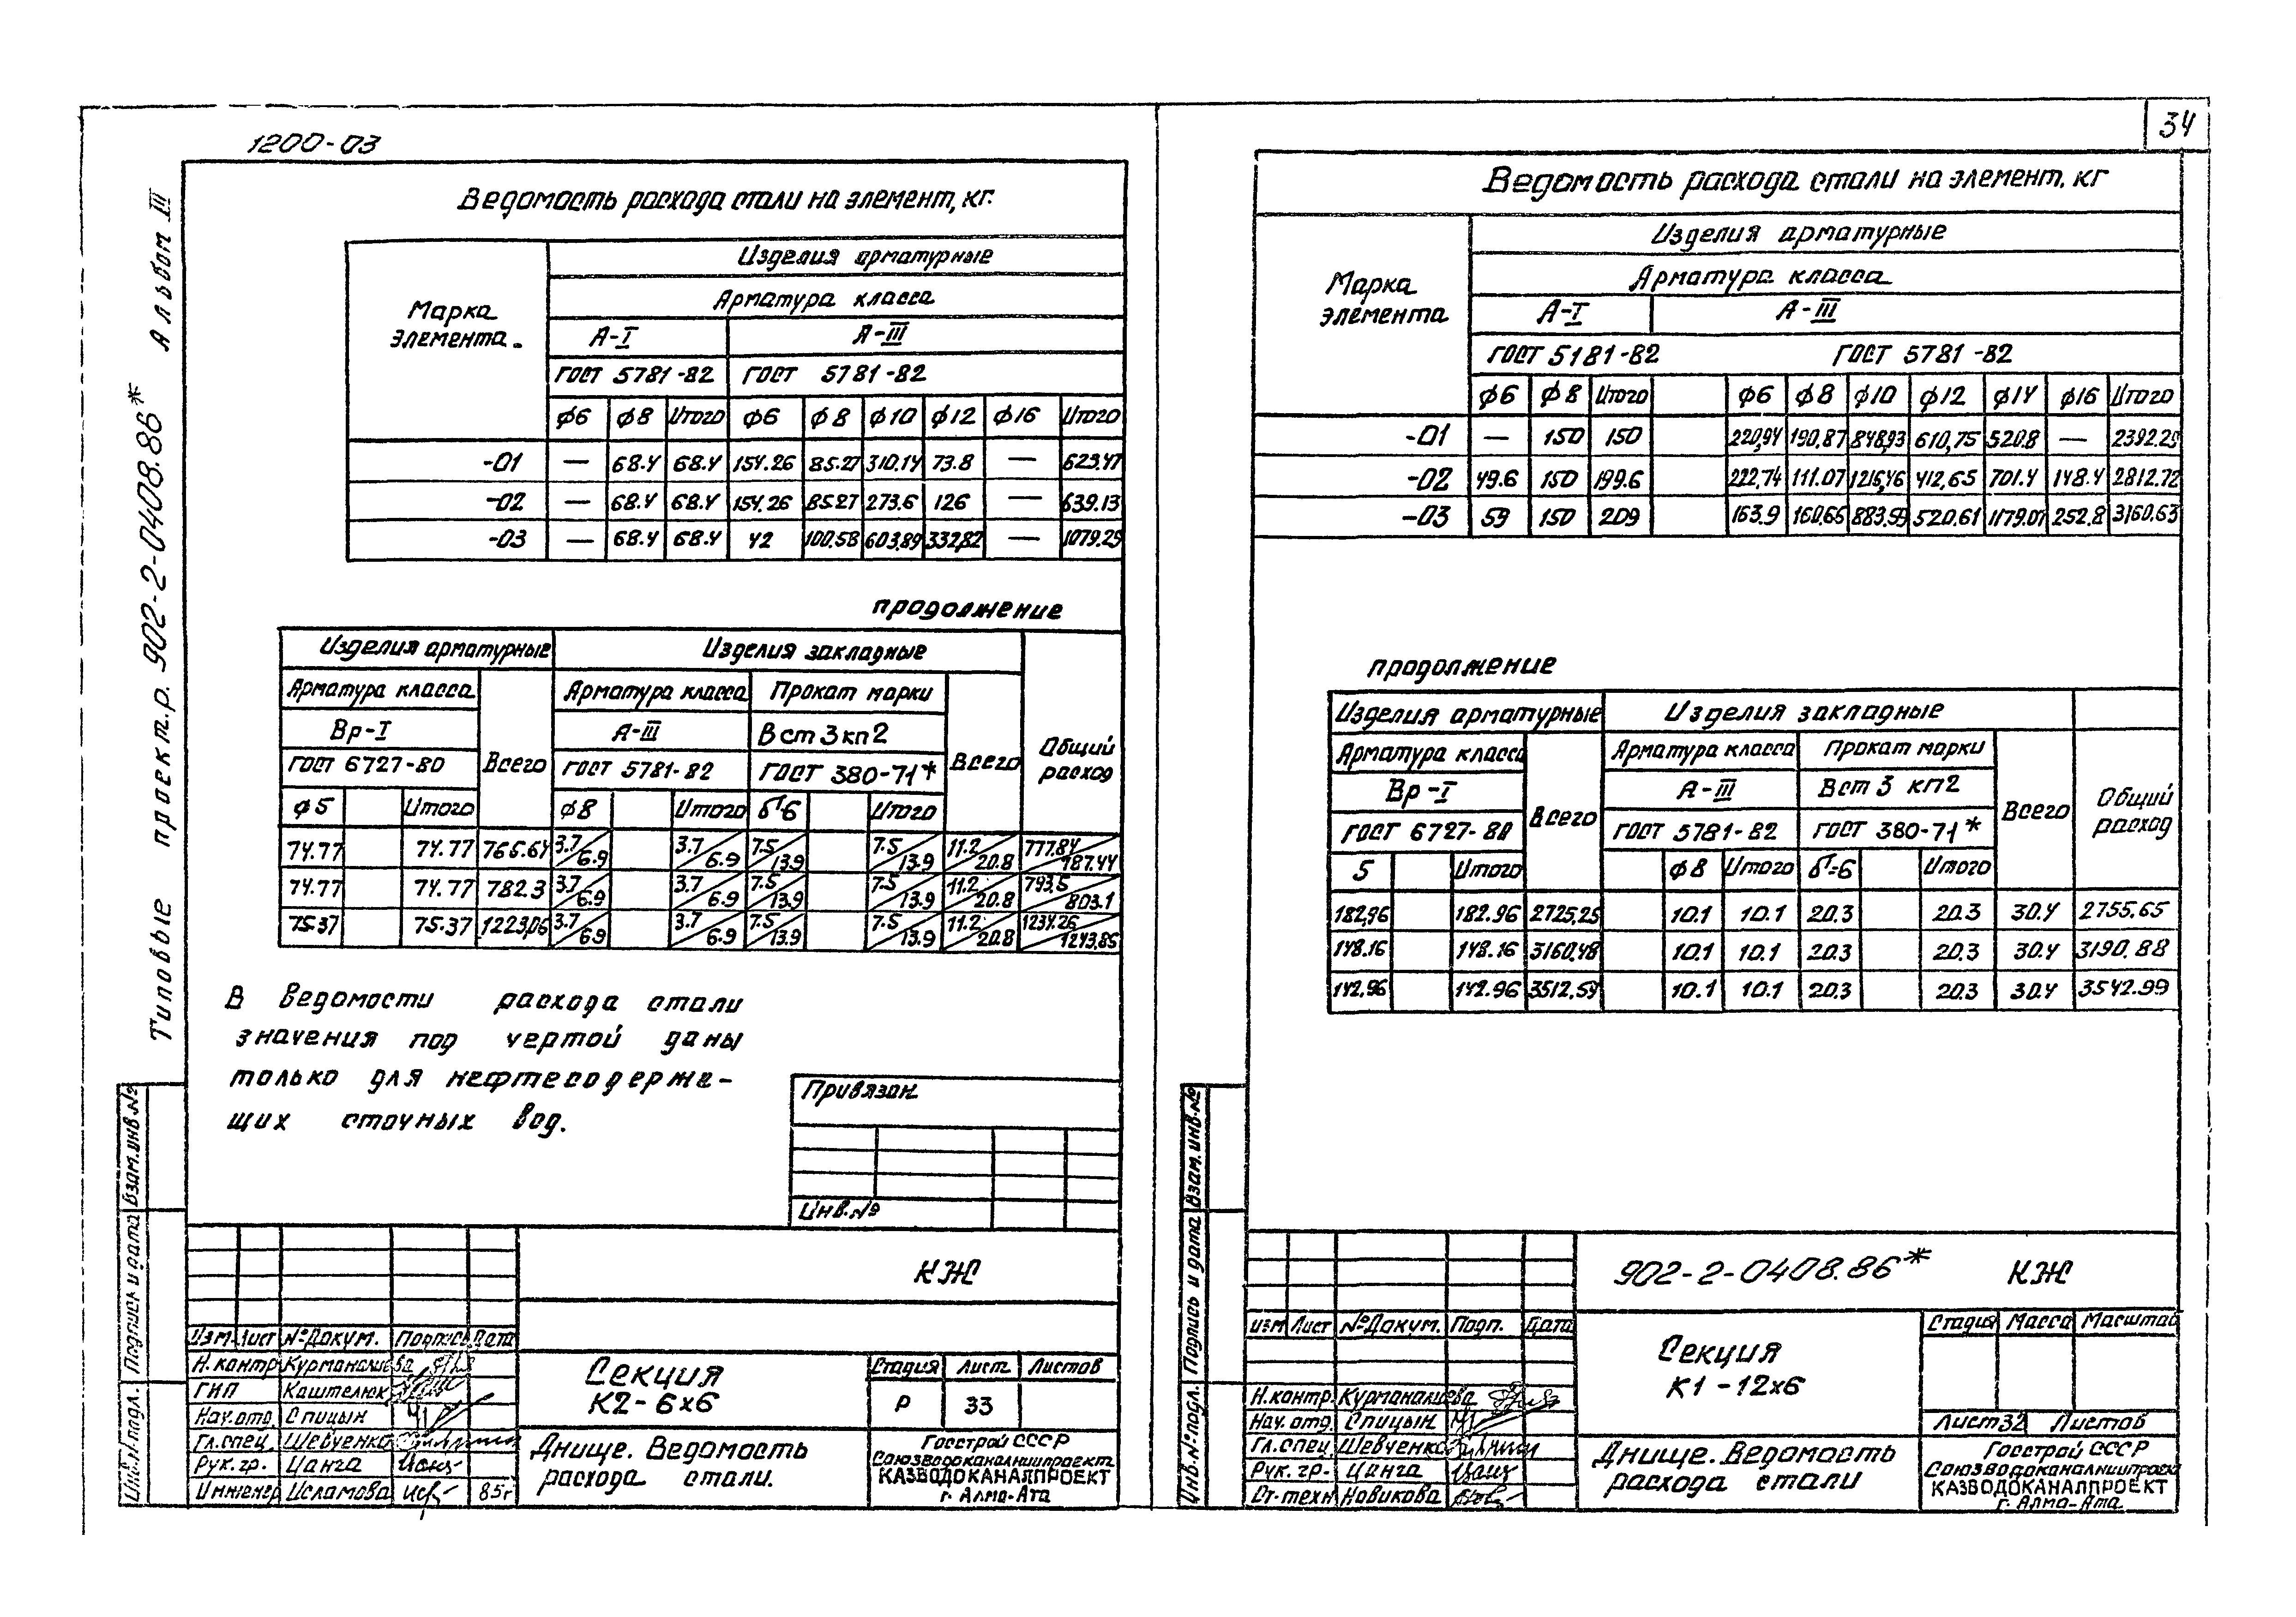 34
1200-03
Типовые проект.р. 902-2-0408.86* Альбом III
Ведомость расхода стали на элемент, кг.
Марка элемента.
Изделия арматурные
Арматура класса
А-I А-III
ГОСТ 5781-82 ГОСТ 5781-82
ф6 ф8 Итого ф6 ф8 ф10 ф12 ф16 Итого
-01 — 68.4 68.4 154.26 85.27 310.14 73.8 — 623.47
-02 — 68.4 68.4 154.26 85.27 273.6 126 — 639.13
-03 — 68.4 68.4 42 100.58 603.89 332.82 — 1079.29
продолжение
Изделия арматурные Изделия закладные Общий расход
Арматура класса Всего Арматура класса Прокат марки Всего
Вр-I А-III Вст3кп2
ГОСТ 6727-80 ГОСТ 5781-82 ГОСТ 380-71*
ф5 Итого ф8 Итого б=6 Итого
74.77 74.77 765.64 3.7/6.9 3.7/6.9 7.5/13.9 7.5/13.9 11.2/20.8 777.84/787.44
74.77 74.77 782.3 3.7/6.9 3.7/6.9 7.5/13.9 7.5/13.9 11.2/20.8 793.5/803.1
75.37 75.37 1223,06 3.7/6.9 3.7/6.9 7.5/13.9 7.5/13.9 11.2/20.8 1234.26/1243.85
В ведомости расхода стали
значения под чертой даны
только для нефтесодержа-
щих сточных вод.
Привязан
Инв.№
Инв.№подл. Подпись и дата Взам.инв.№
КЖ
Изм Лист №Докум. Подпись Дата
Н.контр Курманалиева
ГИП Каштелюк
Нач.отд Спицын
Гл.спец. Шевченко
Рук. гр. Цанга
Инженер Исламова 85г
Секция
К2-6х6
Стадия Лист Листов
Р 33
Днище. Ведомость
расхода стали.
Госстрой СССР
Союзводоканалниипроект
КАЗВОДОКАНАЛПРОЕКТ
г. Алма-Ата
Ведомость расхода стали на элемент, кг
Марка элемента
Изделия арматурные
Арматура класса
А-I А-III
ГОСТ 5181-82 ГОСТ 5781-82
ф6 ф8 Итого ф6 ф8 ф10 ф12 ф14 ф16 Итого
-01 — 150 150 220,94 190.87 848,93 610,75 520.8 — 2392.29
-02 49.6 150 199.6 222.74 111.07 1216,46 412,65 701.4 148.4 2812.72
-03 59 150 209 163.9 160,65 883.59 520.61 1179.01 252.8 3160.63
продолжение
Изделия арматурные Изделия закладные Общий расход
Арматура класса Всего Арматура класса Прокат марки Всего
Вр-I А-III Вст 3 кп2
ГОСТ 6727-80 ГОСТ 5781-82 ГОСТ 380-71*
5 Итого ф8 Итого б=6 Итого
182,96 182.96 2725,25 10.1 10.1 20.3 20.3 30.4 2755.65
148.16 148.16 3160,48 10.1 10.1 20.3 20.3 30.4 3190.88
142,96 142.96 3512,59 10.1 10.1 20.3 20.3 30.4 3542.99
Инв.№подл. Подпись и дата Взам.инв.№
902-2-0408.86* КЖ
Изм Лист №Докум. Подп. Дата
Н.контр. Курманалиева
Нач.отд. Спицын
Гл.спец. Шевченко
Рук. гр. Цанга
Ст.техн. Новикова
Секция
К1-12х6
Стадия Масса Масштаб
Лист 32 Листов
Днище. Ведомость
расхода стали
Госстрой СССР
Союзводоканалниипроект
КАЗВОДОКАНАЛПРОЕКТ
г. Алма-Ата